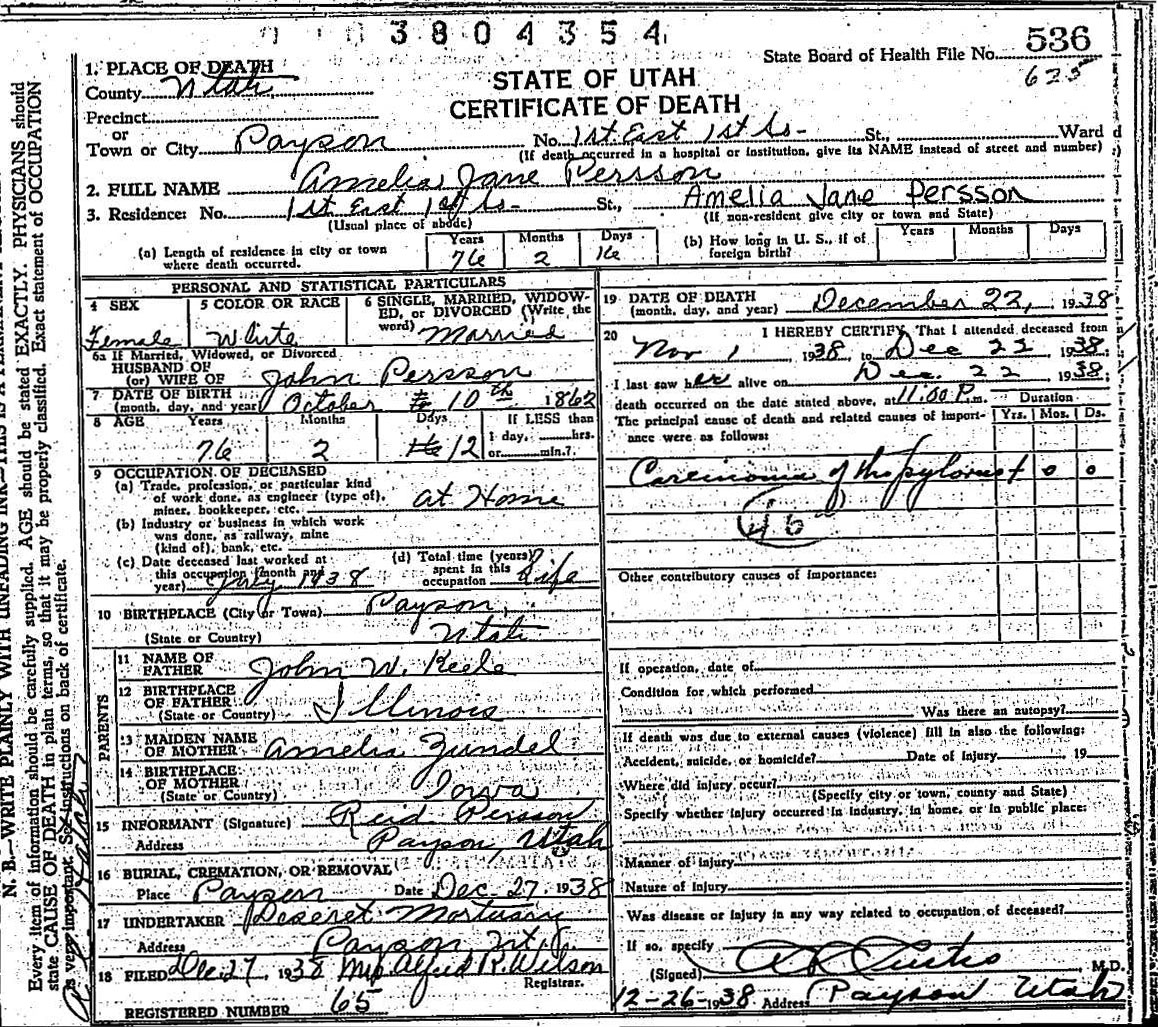 3804354
State Board of Health File No. 536
625
STATE OF UTAH
CERTIFICATE OF DEATH
1. PLACE OF DEATH
County Utah
Precinct
or
Town or City Payson No. 1st. East 1st So- St., Ward
(If death occurred in a hospital or institution, give its NAME instead of street and number)
2. FULL NAME Amelia Jane Persson
Amelia Jane Persson
3. Residence: No. 1st East 1st So- St.,
(Usual place of abode) (If non-resident give city or town and State)
(a) Length of residence in city or town where death occurred. Years 76 Months 2 Days 16
(b) How long in U. S., if of foreign birth? Years Months Days
PERSONAL AND STATISTICAL PARTICULARS
4 SEX 5 COLOR OR RACE 6 SINGLE, MARRIED, WIDOW-
ED, or DIVORCED (Write the
word)
Female White Married
6a If Married, Widowed, or Divorced
HUSBAND OF
(or) WIFE OF John Persson
7 DATE OF BIRTH
(month, day, and year) October 10th 1862
8 AGE Years Months Days If LESS than
76 2 12 1 day, hrs.
or min.?
9 OCCUPATION OF DECEASED
(a) Trade, profession, or particular kind
of work done, as engineer (type of),
miner, bookkeeper, etc. at Home
(b) Industry or business in which work
was done, as railway, mine
(kind of), bank, etc.
(c) Date deceased last worked at
this occupation (month and
year) July 1938
(d) Total time (years)
spent in this
occupation Life
10 BIRTHPLACE (City or Town) Payson,
(State or Country) Utah
PARENTS
11 NAME OF
FATHER John W. Keele
12 BIRTHPLACE
OF FATHER
(State or Country) Illinois
13 MAIDEN NAME
OF MOTHER Amelia Zundel
14 BIRTHPLACE
OF MOTHER
(State or Country) Iowa
15 INFORMANT (Signature) Reid Persson
Address Payson, Utah
16 BURIAL, CREMATION, OR REMOVAL
Place Payson Date Dec-27 1938
17 UNDERTAKER Deseret Mortuary
Address Payson, Ut.
18 FILED Dec 27, 1938 Mrs. Alfred R. Wilson
Registrar.
REGISTERED NUMBER 65
19 DATE OF DEATH
(month, day, and year) December 22, 1938
20 I HEREBY CERTIFY, That I attended deceased from
Nov 1 1938, to Dec 22, 1938;
I last saw her alive on Dec. 22 1938;
death occurred on the date stated above, at 11:00 P.m. Duration
The principal cause of death and related causes of import-
ance were as follows: Yrs. Mos. Ds.
Carcinoma of the pylorus 1 0 0
Other contributory causes of importance:
If operation, date of
Condition for which performed
Was there an autopsy?
If death was due to external causes (violence) fill in also the following:
Accident, suicide, or homicide? Date of injury 19
Where did injury occur?
(Specify city or town, county and State)
Specify whether injury occurred in industry, in home, or in public place:
Manner of injury
Nature of injury
Was disease or injury in any way related to occupation of deceased?
If so, specify
(Signed) A R Curtis, M.D.
12-26-1938 Address Payson Utah
N. B.—WRITE PLAINLY WITH UNFADING INK—THIS IS A PERMANENT
Every item of information should be carefully supplied. AGE should be stated EXACTLY. PHYSICIANS should
state CAUSE OF DEATH in plain terms, so that it may be properly classified. Exact statement of OCCUPATION
is very important. See instructions on back of certificate.